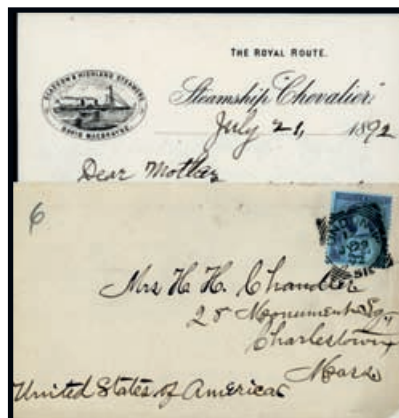 THE ROYAL ROUTE.
GLASGOW & HIGHLAND STEAMERS
DAVID MACBRAYNE
Steamship "Chevalier."
July 21, 1892
Dear Mother
6
Mrs H. H. Chandler
28 Monument Sq.
Charlestown
Mass
United States of America